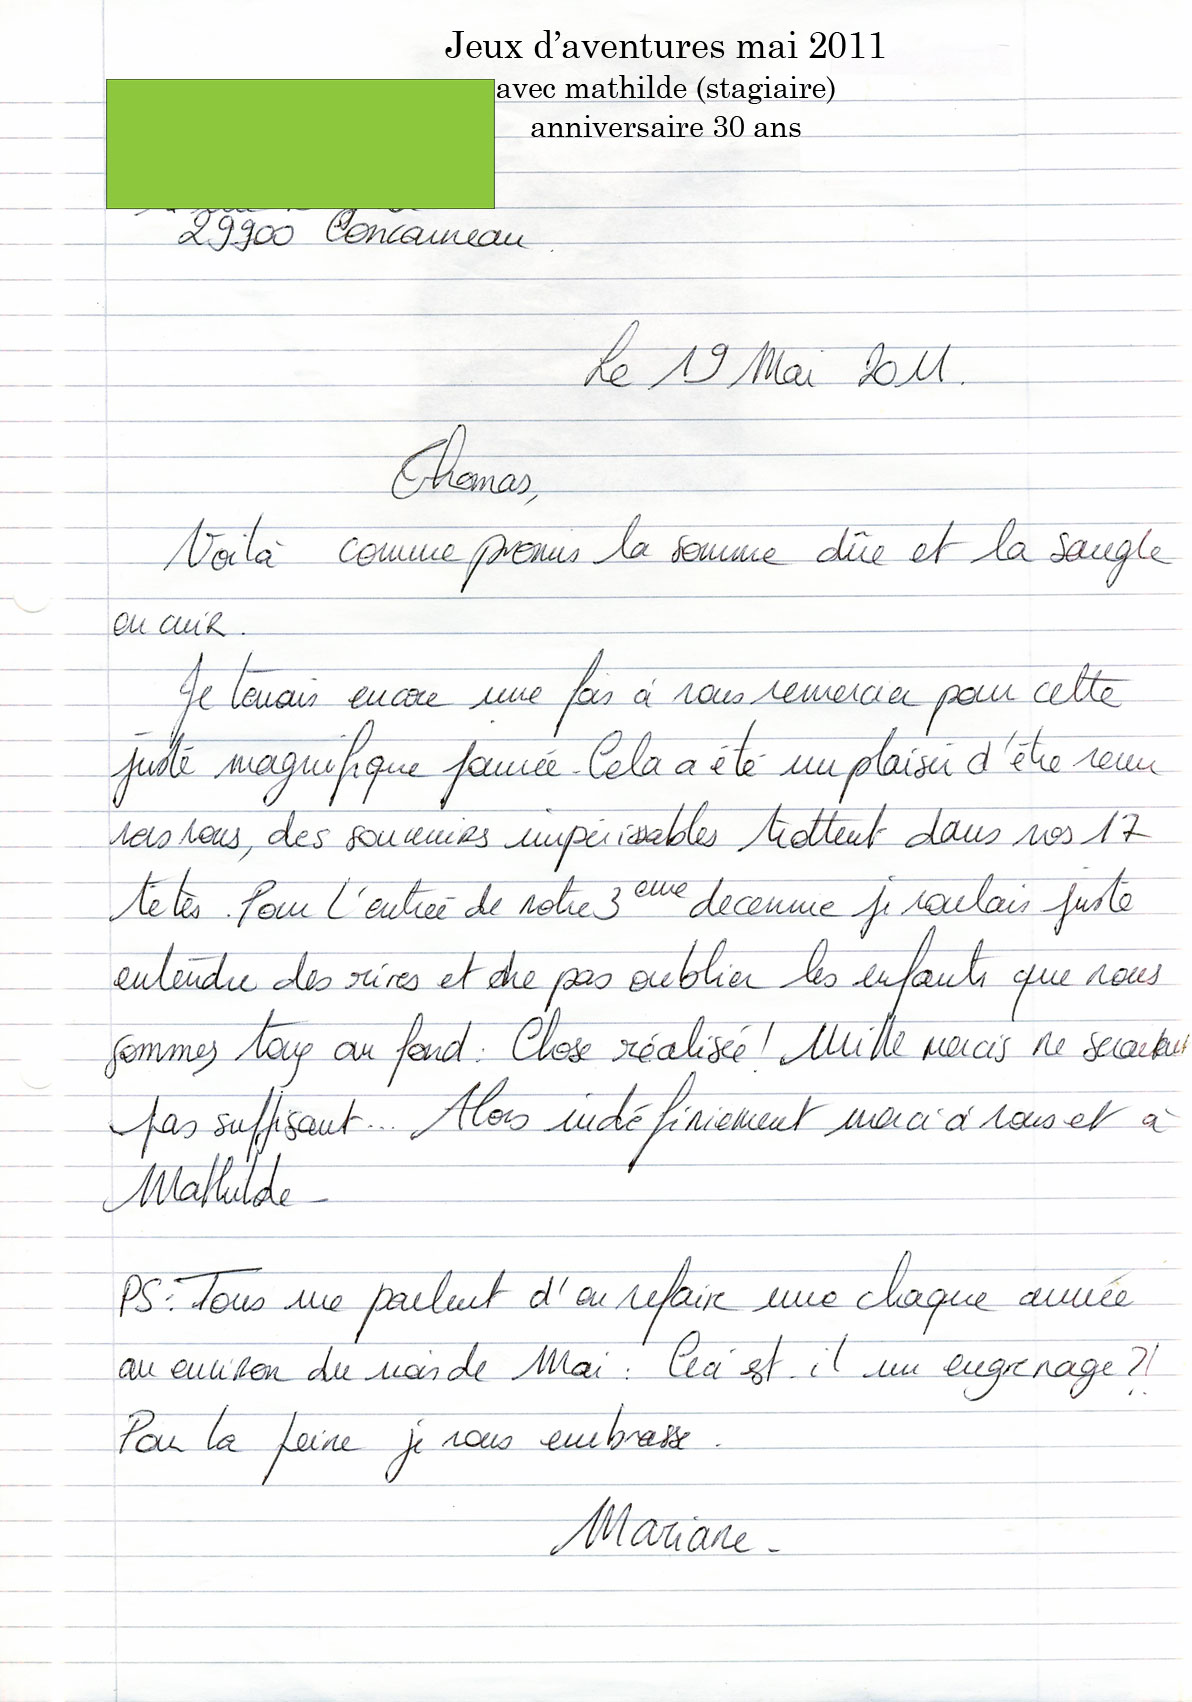 Jeux d'aventures mai 2011
avec mathilde (stagiaire)
anniversaire 30 ans
29900 Concarneau
Le 19 Mai 2011.
Thomas,
Voilà comme promis la somme dûe et la sangle
en cuir.
Je tenais encore une fois à vous remercier pour cette
juste magnifique journée. Cela a été un plaisir d'être venu
vers vous, des souvenirs impérissables trottent dans nos 17
têtes. Pour l'entrée de notre 3eme decennie je voulais juste
entendre des rires et ne pas oublier les enfants que nous
sommes tous au fond. Chose réalisée ! Mille mercis ne seraient
pas suffisant... Alors indéfiniement merci à vous et à
Mathilde -
PS : Tous me parlent d'en refaire une chaque année
au environ du mois de Mai : Ceci est-il un engrenage ?!
Pour la peine je vous embrasse.
Mariane -